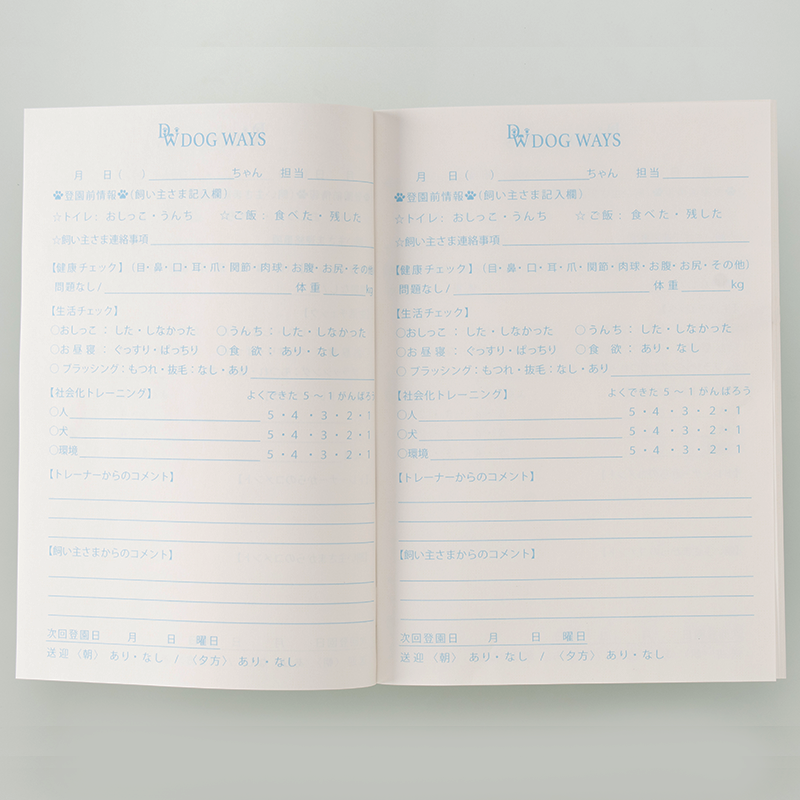 DW DOG WAYS
月 日( ) ＿＿＿ちゃん 担当＿＿＿
🐾登園前情報🐾(飼い主さま記入欄)
☆トイレ: おしっこ・うんち ☆ご飯: 食べた・残した
☆飼い主さま連絡事項
【健康チェック】(目・鼻・口・耳・爪・関節・肉球・お腹・お尻・その他
問題なし/ 体重 kg
【生活チェック】
○おしっこ: した・しなかった ○うんち: した・しなかった
○お昼寝: ぐっすり・ぱっちり ○食欲: あり・なし
○ブラッシング:もつれ・抜毛:なし・あり
【社会化トレーニング】 よくできた 5～1がんばろう
○人 5・4・3・2・1
○犬 5・4・3・2・1
○環境 5・4・3・2・1
【トレーナーからのコメント】
【飼い主さまからのコメント】
次回登園日 月 日 曜日
送迎〈朝〉あり・なし / 〈夕方〉あり・なし
DW DOG WAYS
月 日( ) ＿＿＿ちゃん 担当＿＿＿
🐾登園前情報🐾(飼い主さま記入欄)
☆トイレ: おしっこ・うんち ☆ご飯: 食べた・残した
☆飼い主さま連絡事項
【健康チェック】(目・鼻・口・耳・爪・関節・肉球・お腹・お尻・その他)
問題なし/ 体重 kg
【生活チェック】
○おしっこ: した・しなかった ○うんち: した・しなかった
○お昼寝: ぐっすり・ぱっちり ○食欲: あり・なし
○ブラッシング:もつれ・抜毛:なし・あり
【社会化トレーニング】 よくできた 5～1がんばろう
○人 5・4・3・2・1
○犬 5・4・3・2・1
○環境 5・4・3・2・1
【トレーナーからのコメント】
【飼い主さまからのコメント】
次回登園日 月 日 曜日
送迎〈朝〉あり・なし / 〈夕方〉あり・なし